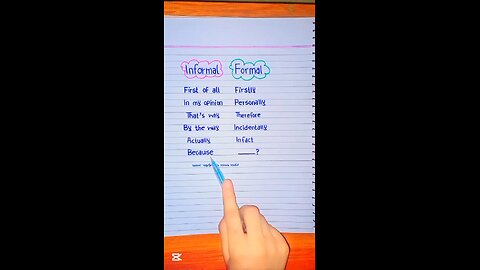 Informal Formal
First of all Firstly
In my opinion Personally
That's way Therefore
By the way Incidentally
Actually Infact
Because ____?